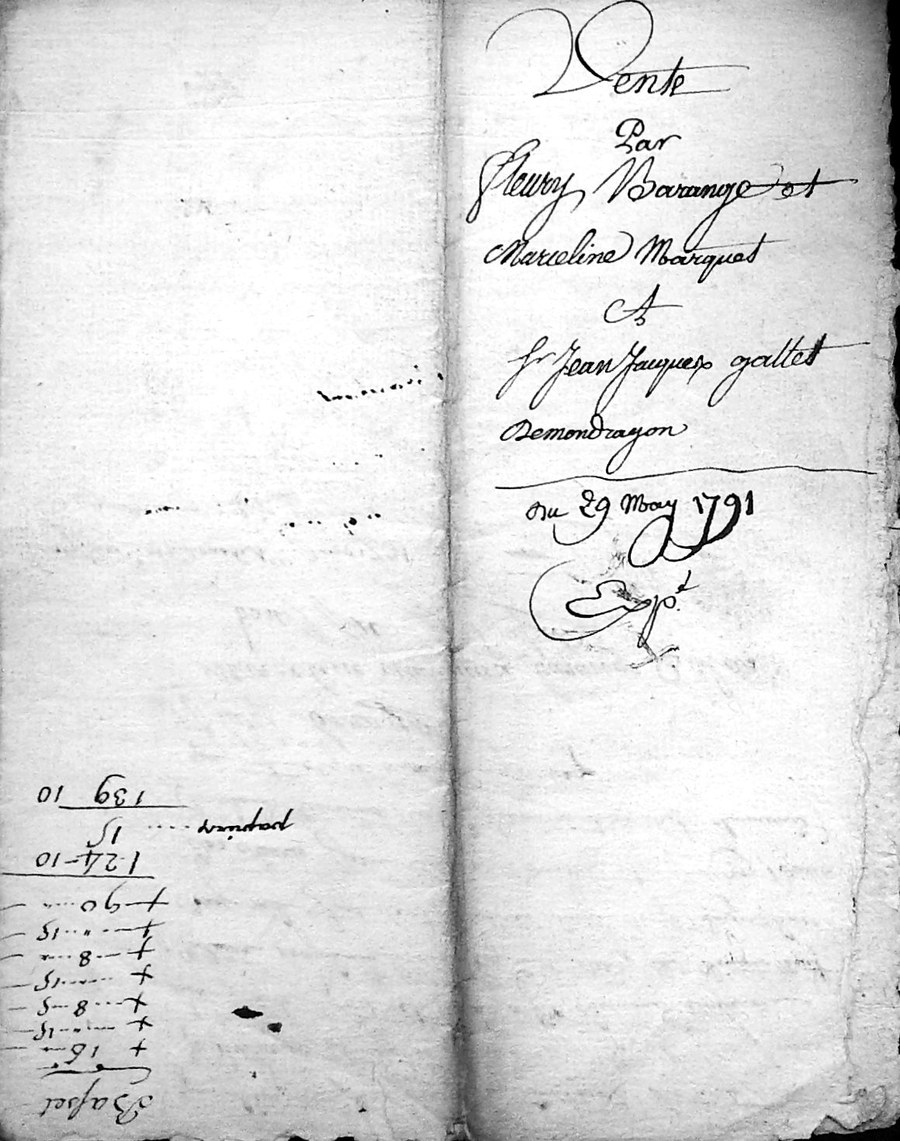 Vente
Par
fleury Barange et
Marceline Marquet
A
Sr Jean Jacques gallet
Demondragon
Du 29 May 1791
Expd
Bassel
+ 16 
+ 15
+ 8 5
+ 15
+ 8
+ 15
+ 90
124-10
papier 15
139 10